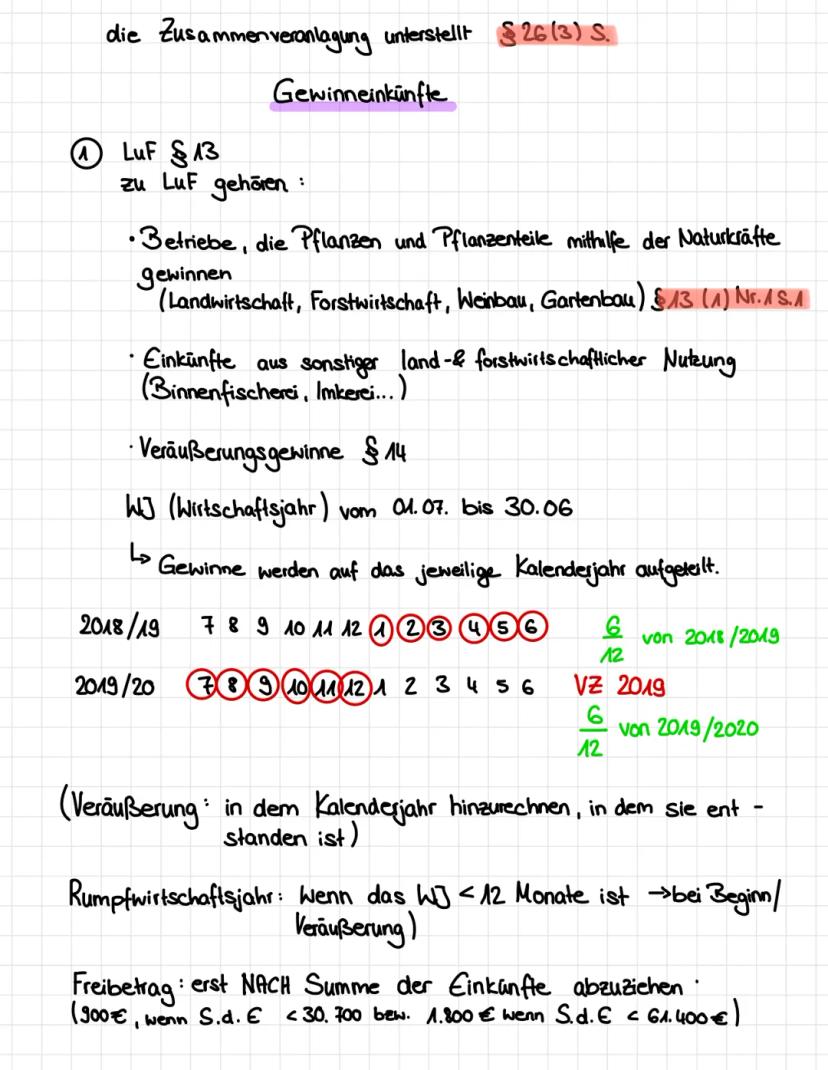 die Zusammenveranlagung unterstellt § 26 (3) S.
Gewinneinkünfte
① LuF § 13
zu LuF gehören :
· Betriebe, die Pflanzen und Pflanzenteile mithilfe der Naturkräfte
gewinnen
(Landwirtschaft, Forstwirtschaft, Weinbau, Gartenbau) § 13 (1) Nr. 1 S. 1
· Einkünfte aus sonstiger land- & forstwirtschaftlicher Nutzung
(Binnenfischerei, Imkerei...)
· Veräußerungsgewinne § 14
WJ (Wirtschaftsjahr) vom 01.07. bis 30.06
↳ Gewinne werden auf das jeweilige Kalenderjahr aufgeteilt.
2018/19 7 8 9 10 11 12 1 2 3 4 5 6 6/12 von 2018/2019
2019/20 7 8 9 10 11 12 1 2 3 4 5 6 VZ 2019
6/12 von 2019/2020
(Veräußerung : in dem Kalenderjahr hinzurechnen, in dem sie ent -
standen ist)
Rumpfwirtschaftsjahr : Wenn das WJ < 12 Monate ist → bei Beginn/
Veräußerung)
Freibetrag : erst NACH Summe der Einkünfte abzuziehen ·
(900€, wenn S.d.E < 30.700 bew. 1.800 € wenn S.d.E < 61.400€)